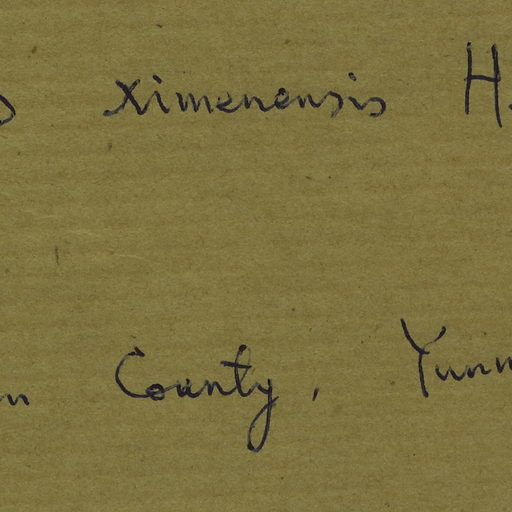 ximenensis H.
County, Yunn